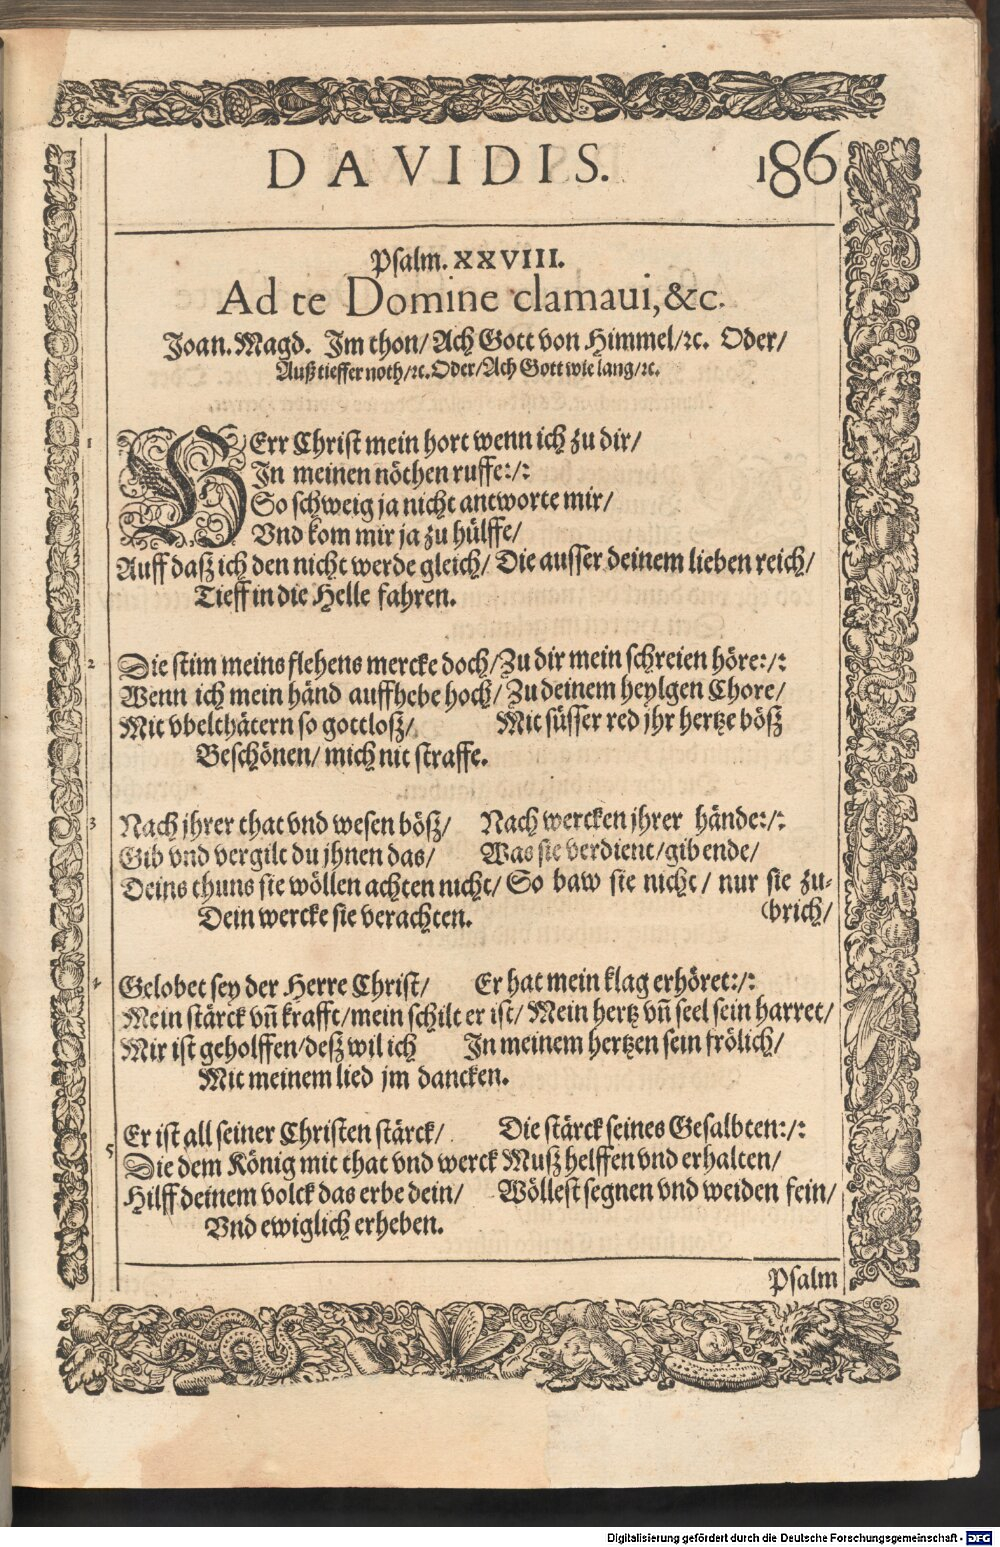 DAVIDIS. 186
Psalm. XXVIII.
Ad te Domine clamaui, &c.
Joan. Magd. Im thon/ Ach Gott von Himmel/ ꝛc. Oder/
Auß tieffer noth/ ꝛc. Oder/ Ach Gott wie lang/ ꝛc.
1 HErr Christ mein hort wenn ich zu dir/
In meinen nöthen ruffe:/:
So schweig ja nicht antworte mir/
Vnd kom mir ja zu hülffe/
Auff daß ich den nicht werde gleich/ Die ausser deinem lieben reich/
Tieff in die Helle fahren.
2 Die stim meins flehens mercke doch/ Zu dir mein schreien höre:/:
Wenn ich mein händ auffhebe hoch/ Zu deinem heylgen Chore/
Mit vbelthätern so gottloß/ Mit süsser red jhr hertze böß
Beschönen/ mich nit straffe.
3 Nach jhrer that vnd wesen böß/ Nach wercken jhrer hände:/:
Gib vnd vergilt du jhnen das/ Was sie verdient/ gib ende/
Deins thuns sie wöllen achten nicht/ So baw sie nicht/ nur sie zu-
(brich/
Dein wercke sie verachten.
4 Gelobet sey der Herre Christ/ Er hat mein klag erhöret:/:
Mein stärck vn̄ krafft/ mein schilt er ist/ Mein hertz vn̄ seel sein harret/
Mir ist geholffen/ deß wil ich In meinem hertzen sein frölich/
Mit meinem lied jm dancken.
5 Er ist all seiner Christen stärck/ Die stärck seines Gesalbten:/:
Die dem König mit that vnd werck Muß helffen vnd erhalten/
Hilff deinem volck das erbe dein/ Wöllest segnen vnd weiden fein/
Vnd ewiglich erheben.
Psalm
Digitalisierung gefördert durch die Deutsche Forschungsgemeinschaft - DFG